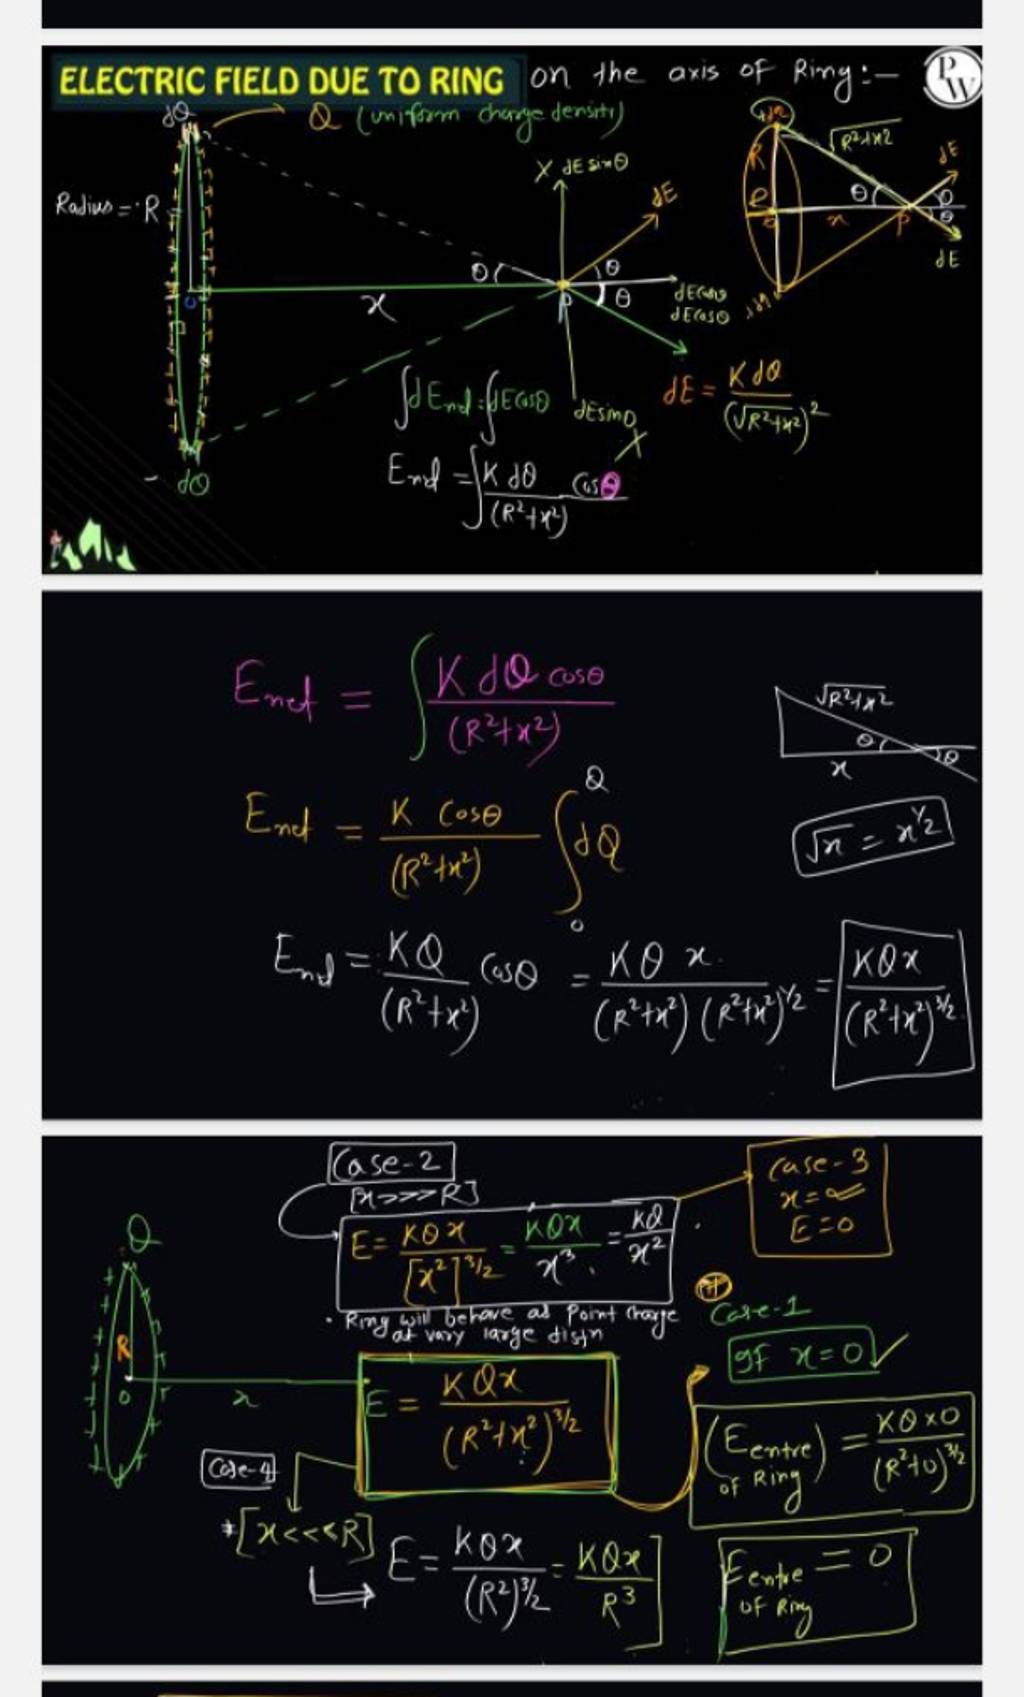 ELECTRIC FIELD DUE TO RING on the axis of Ring:–
PW
dQ
Q (uniform charge density)
Radius = R
O
x
θ
X dE sinθ
dE
θ
θ
P
dEcosθ
dEcosθ
dEsinθ
X
- dQ
+dQ
R
√R²+x²
θ
x
P
dE
θ
θ
dE
∫dEnet = ∫dEcosθ
dE = KdQ/(√R²+x²)²
Enet = ∫KdQ/(R²+x²) cosθ
Enet = ∫ K dQ cosθ/(R²+x²)
√R²+x²
θ
x
θ
Enet = K Cosθ/(R²+x²) ∫₀^Q dQ
√x = x^½
Enet = KQ/(R²+x²) Cosθ = KQ x/(R²+x²)(R²+x²)^½ = KQx/(R²+x²)^3/2
Case-2
[x>>>R]
Case-3
x=∞
E=0
Q
E = KQx/[x²]^3/2 = KQx/x³ = KQ/x²
• Ring will behave as Point charge
at vary large distn
Case-1
If x=0 ✓
R
O
x
E = KQx/(R²+x²)^3/2
(Ecentre of Ring) = KQ×0/(R²+0)^3/2
Case-4
*[x<<<R]
E = KQx/(R²)^3/2 = KQx/R³
Ecentre of Ring = 0